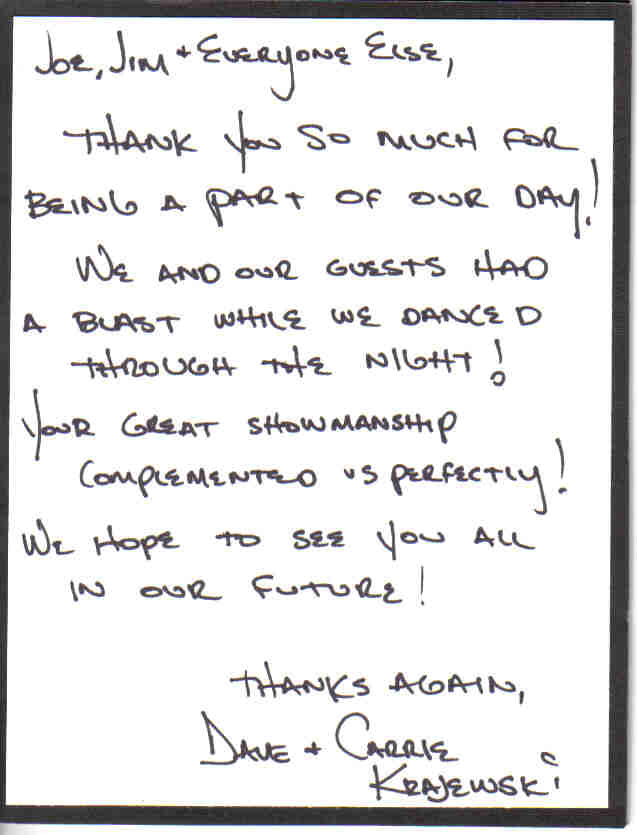 Joe, Jim + Everyone Else,
Thank you so much for
being a part of our day!
We and our guests had
a blast while we danced
through the night!
Your great showmanship
complemented us perfectly!
We hope to see you all
in our future!
Thanks again,
Dave + Carrie
Krajewski